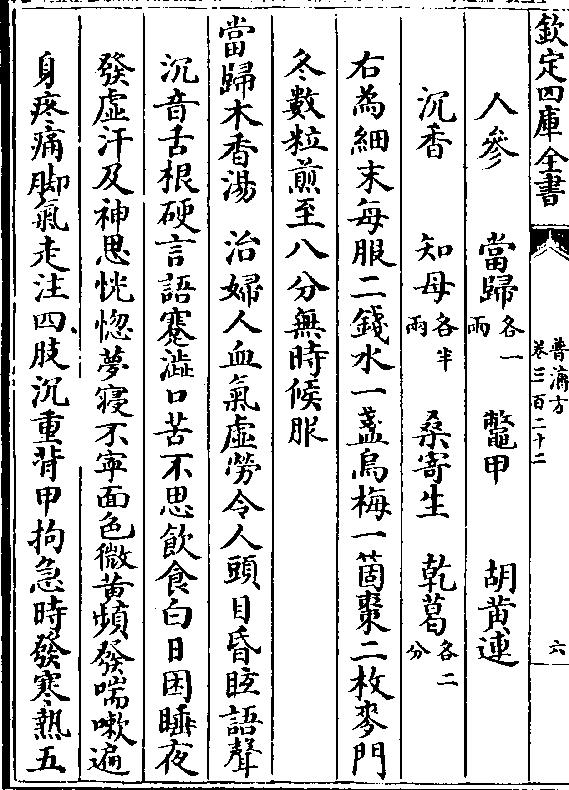 欽定四庫全書
普濟方
卷三百二十二
六
人參 當歸各一兩 鼈甲 胡黃連
沉香 知母各半兩 桑寄生 乾葛各二分
右為細末每服二錢水一盞烏梅一箇棗二枚麥門
冬數粒煎至八分無時候服
當歸木香湯 治婦人血氣虛勞令人頭目昏眩語聲
沉音舌根硬言語蹇澁口苦不思飲食白日困睡夜
發虛汗及神思恍惚夢寢不寧面色微黃頻發喘嗽遍
身疼痛脚氣走注四肢沉重背甲拘急時發寒熱五